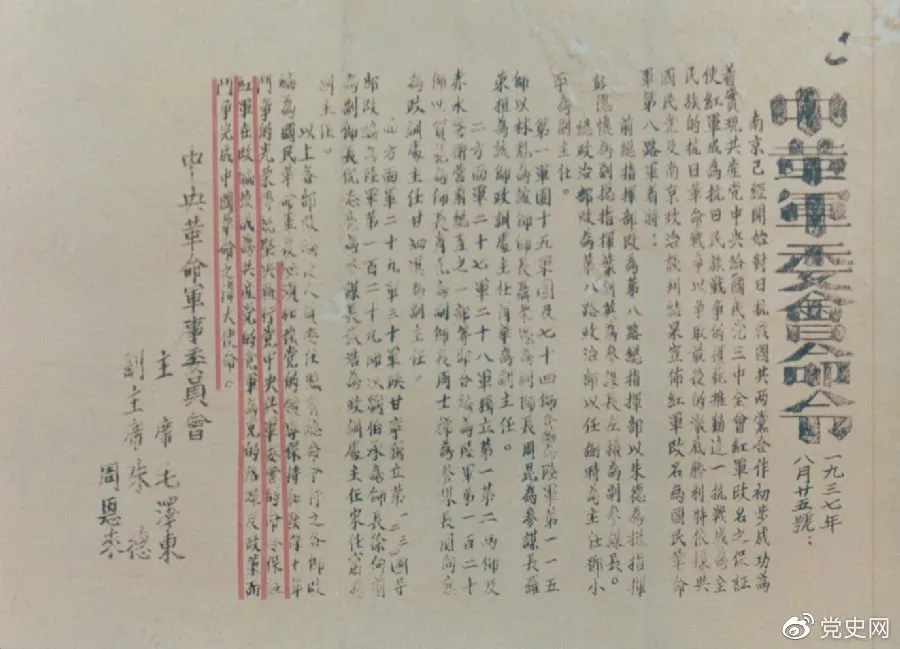 中華軍委會命令
一九三七年
八月廿五號：
南京已經開始對日抗戰國共兩黨合作初步成功為
着實現共產党中央給國民党三中全會紅軍改名之保証
使紅軍成為抗日民族戰爭的模範推動這一抗戰成為全
民族的抗日革命戰爭以爭取最後的澈底勝利特依據與
國民党及南京政治談判結果宣佈紅軍改名為國民革命
軍第八路軍着將：
前總指揮部改為第八路總指揮部以朱德為總指揮
彭德懷為副總指揮葉劍英為參謀長左權為副參謀長。
總政治部改為第八路政治部以任弼時為主任鄧小
平為副主任。
第一軍團十五軍團及七十四師合編為陸軍第一一五
師以林彪為該師師長聶榮臻為副師長周昆為參謀長羅
榮桓為該師政訓處主任蕭華為副主任。
二方面軍二十七軍二十八軍獨立第一第二兩師及
赤水警衛營前總直之一部等部合編為陸軍第一百二十
師以賀龍為師長蕭克為副師長周士第為參謀長關向應
為政訓處主任甘泗淇為副主任。
四方面軍二十九軍三十軍陝甘寧獨立第一二三四等
部改編為陸軍第一百二十九師以劉伯承為師長徐向前
為副師長倪志亮為參謀長張浩為政訓處主任宋任窮為
副主任。
以上各部改編
編為國民革命軍後必須加強党的領導保持和發揮十年
鬥爭的光榮傳統堅決執行党中央與軍委會的命令保証
紅軍在改編後成為共產党的党軍為党的路線及政策而
鬥爭完成中國革命之偉大使命。
中央革命軍事委員會
主席毛澤東
副主席朱德
周恩來
党史网